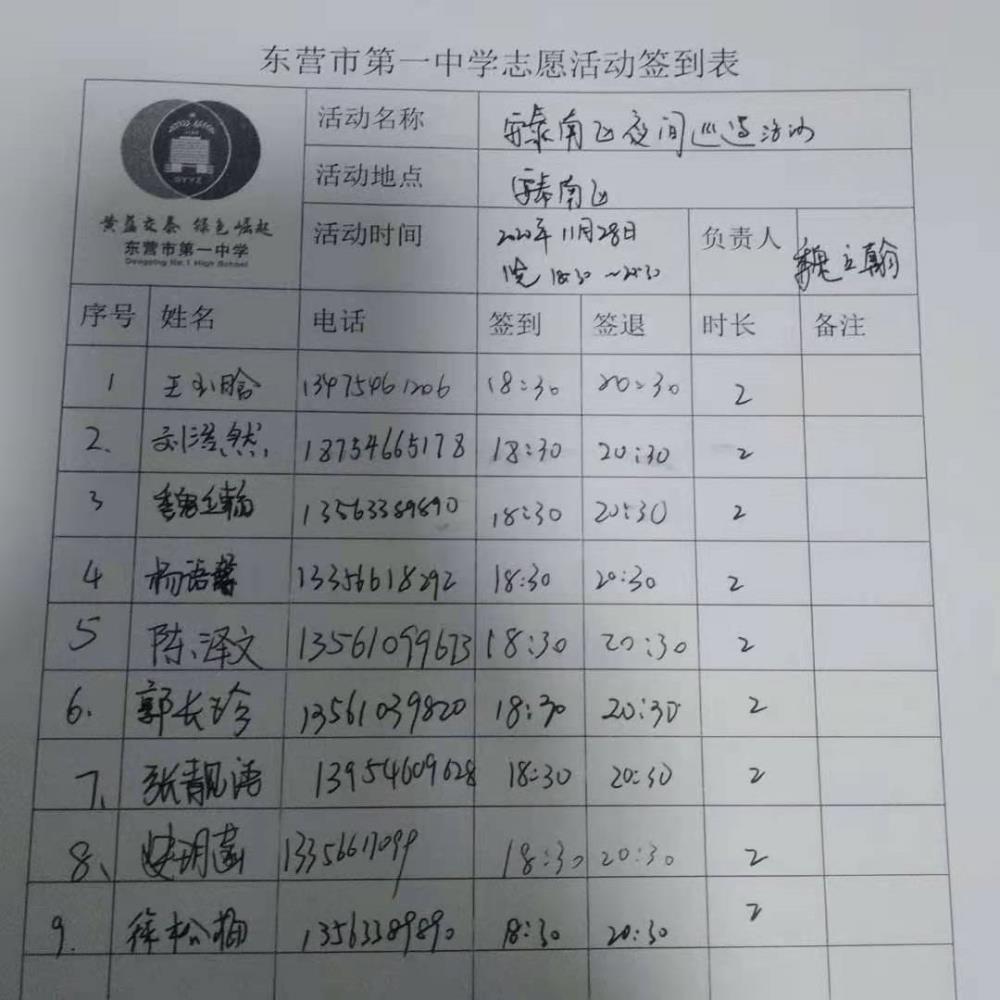 东营市第一中学志愿活动签到表
DYYZ
黄蓝交泰 绿色崛起
东营市第一中学
Dongying No.1 High School
活动名称 南 夜间巡逻活动
活动地点 南
活动时间 2020年11月28日 负责人 魏立翰
晚 18:30 ~20:30
序号 姓名 电话 签到 签退 时长 备注
1 王 晗 13475461206 18:30 20:30 2
2、 刘浩然 18754665178 18:30 20:30 2
3 魏立翰 13563389890 18:30 20:30 2
4 杨语馨 13356618292 18:30 20:30 2
5 陈泽文 13561099673 18:30 20:30 2
6. 郭长珍 13561039820 18:30 20:30 2
7、 张靓语 13954609628 18:30 20:30 2
8、 玥 18:30 20:30 2
9. 徐松梅 13563389890 18:30 20:30 2